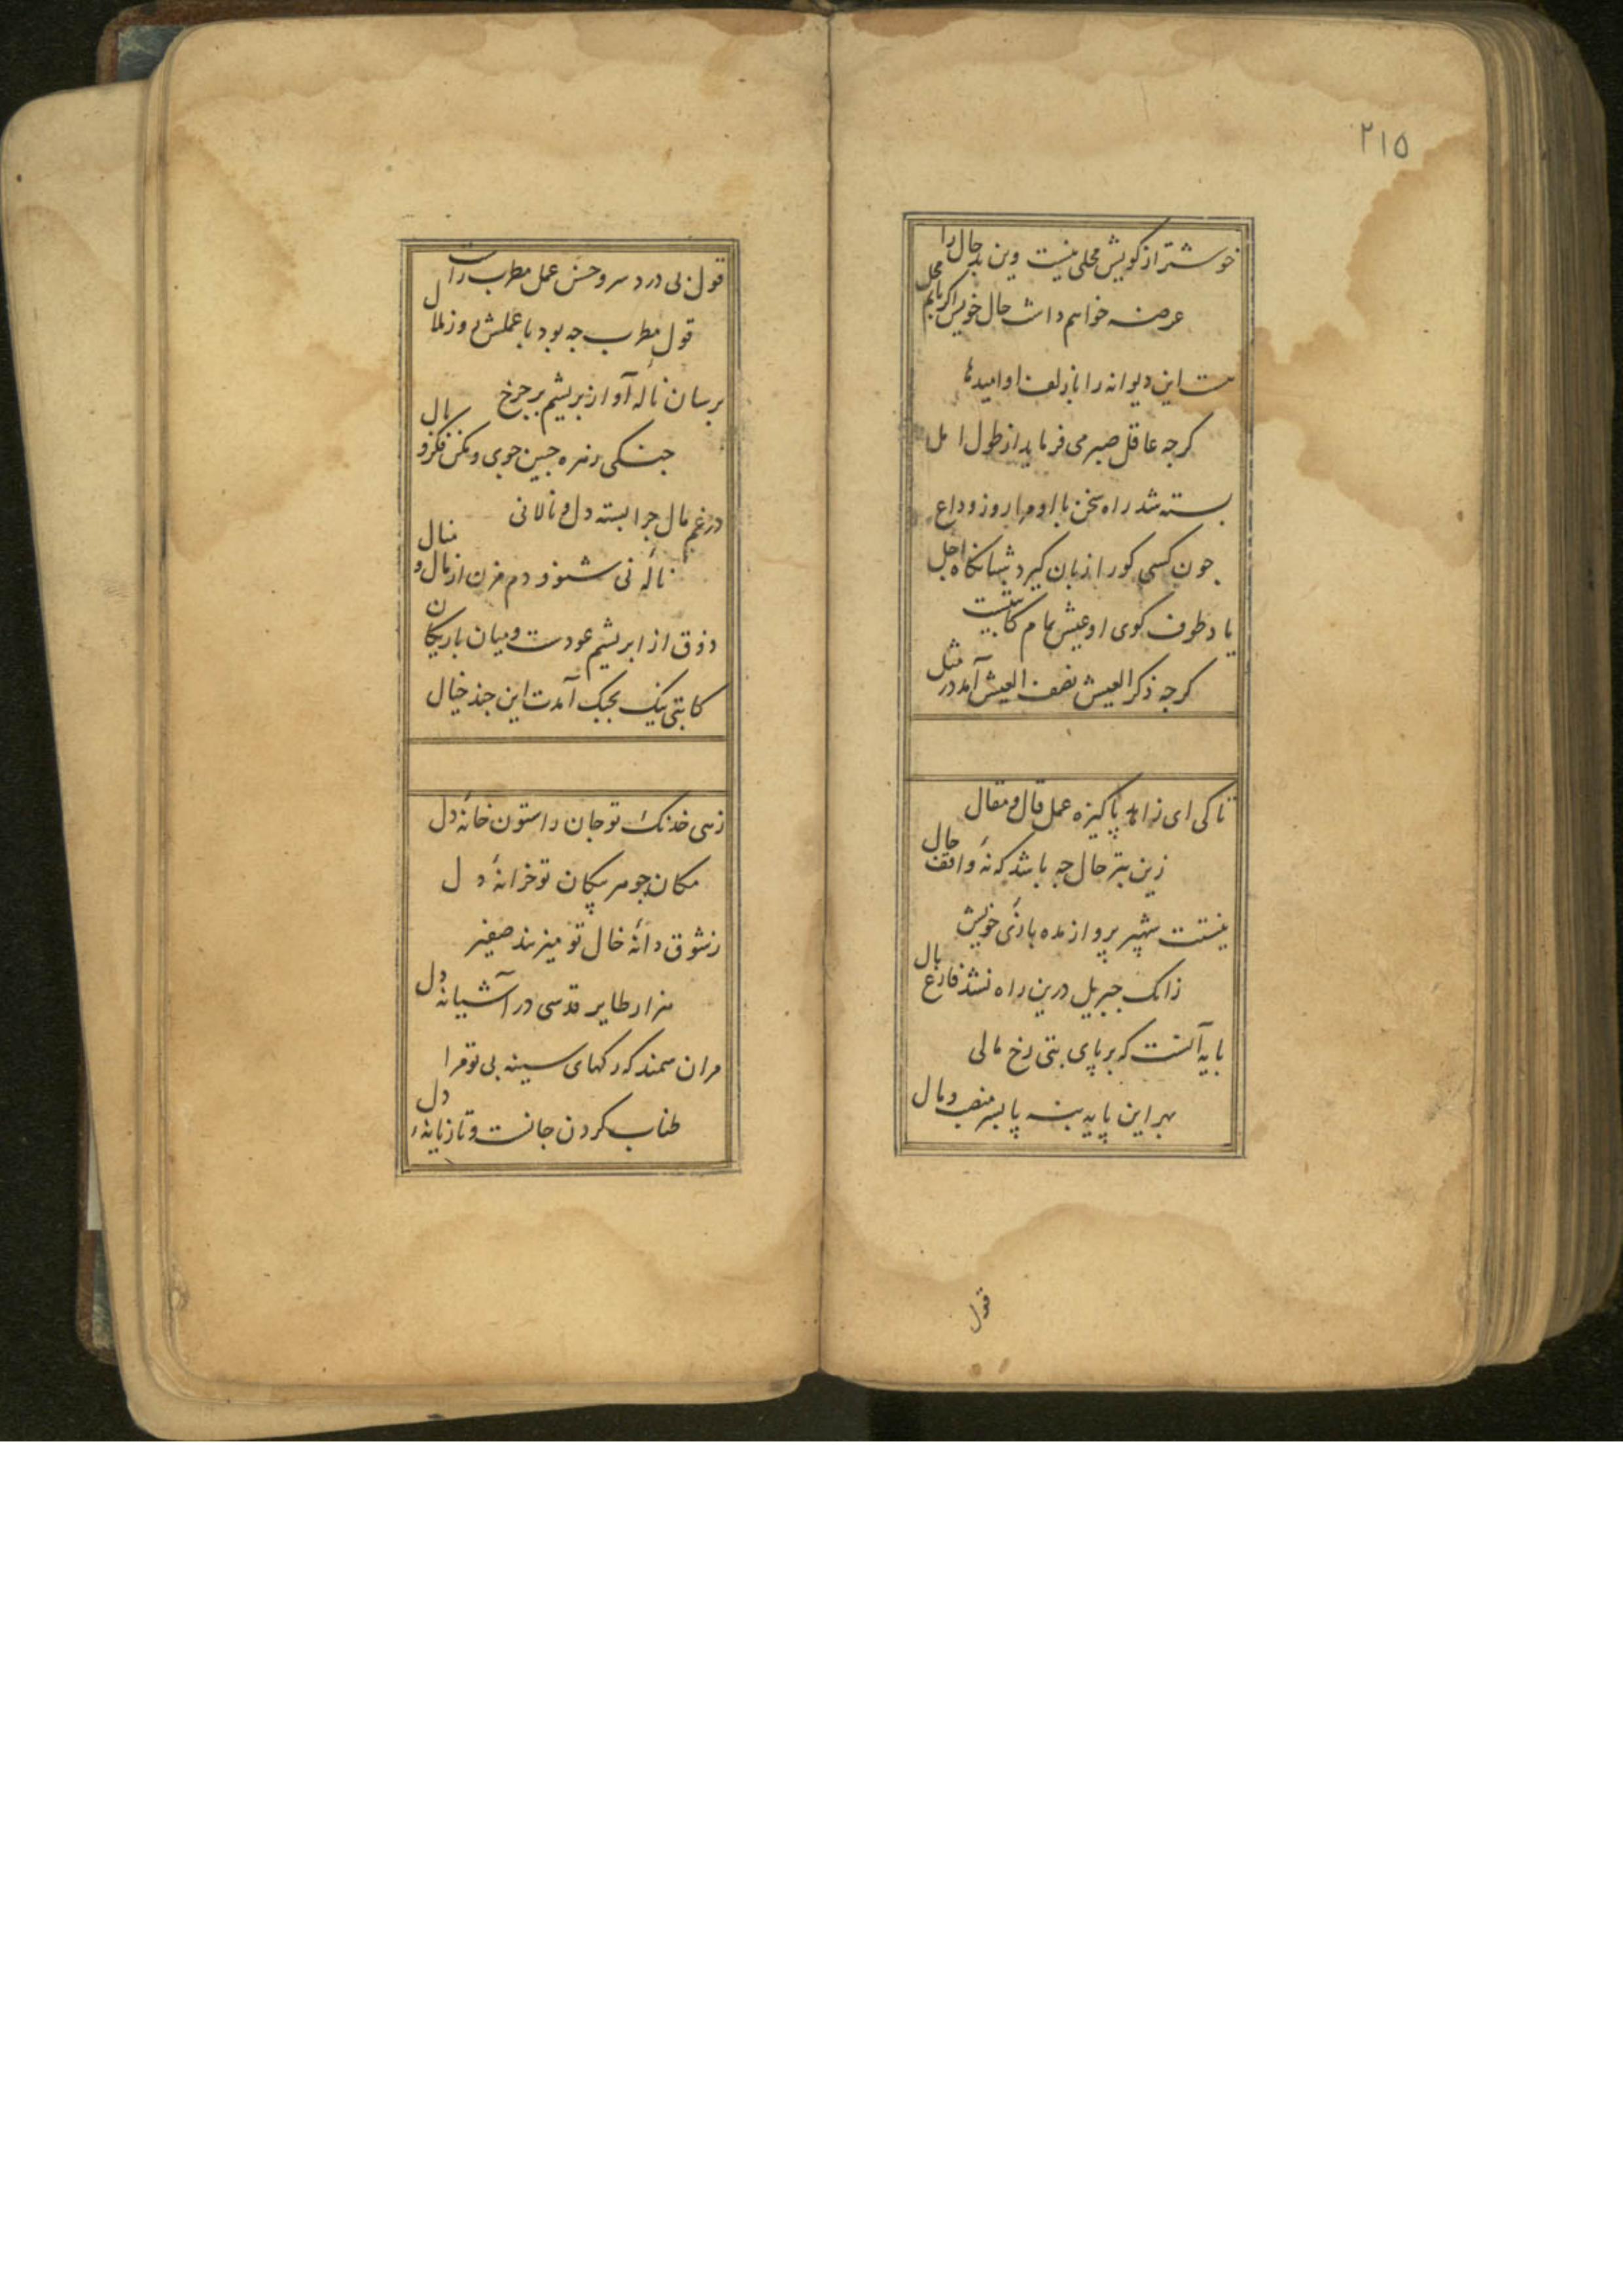 ۲۱۵
خوشتر از کویش محلی نیست وین بد حال را
عرضه خواهم داشت حال خویش اکر یابم محل
هست این دیوانه را با زلف او امیدها
کرچه عاقل صبر می فرماید از طول امل
بسته شد راه سخن با او مرا روز وداع
چون کسی کو را زبان کیرد شبانکاه اجل
یاد طوف کوی او عیش تمام کاتبیست
کرچه ذکر العیش نصف العیش آمد در مثل
تا کی ای زاهد پاکیزه عمل قال و مقال
زین بتر حال چه باشد که نهٔ واقف حال
نیستت شهپر پرواز مده بازی خویش
زانک جبریل درین راه نشد فارغ بال
پایه آنست که بر پای بتی رخ مالی
بهر این پایه بنه پا بسر منصب و مال
قول
قول بی درد سر و حسن عمل مطرب راست
قول مطرب چه بود با عملش روز
برسان نالهٔ آواز بریشم بر چرخ
چنکی زهره جبین جوی و مکن فکر وبال
در غم مال چرا بسته دل و نالانی
نالهٔ نی شنو و دم مزن از مال و منال
ذوق از ابریشم عودست و میان باریکان
کاتبی نیک بچنک آمدت این چند خیال
زهی خدنک تو جان را ستون خانهٔ دل
مکان جوهر پیکان تو خزانهٔ دل
ز شوق دانهٔ خال تو میزنند صفیر
هزار طایر قدسی در آشیانهٔ دل
مران سمند که رکهای سینه بی تو مرا
طناب کردن جانست و تازیانهٔ دل